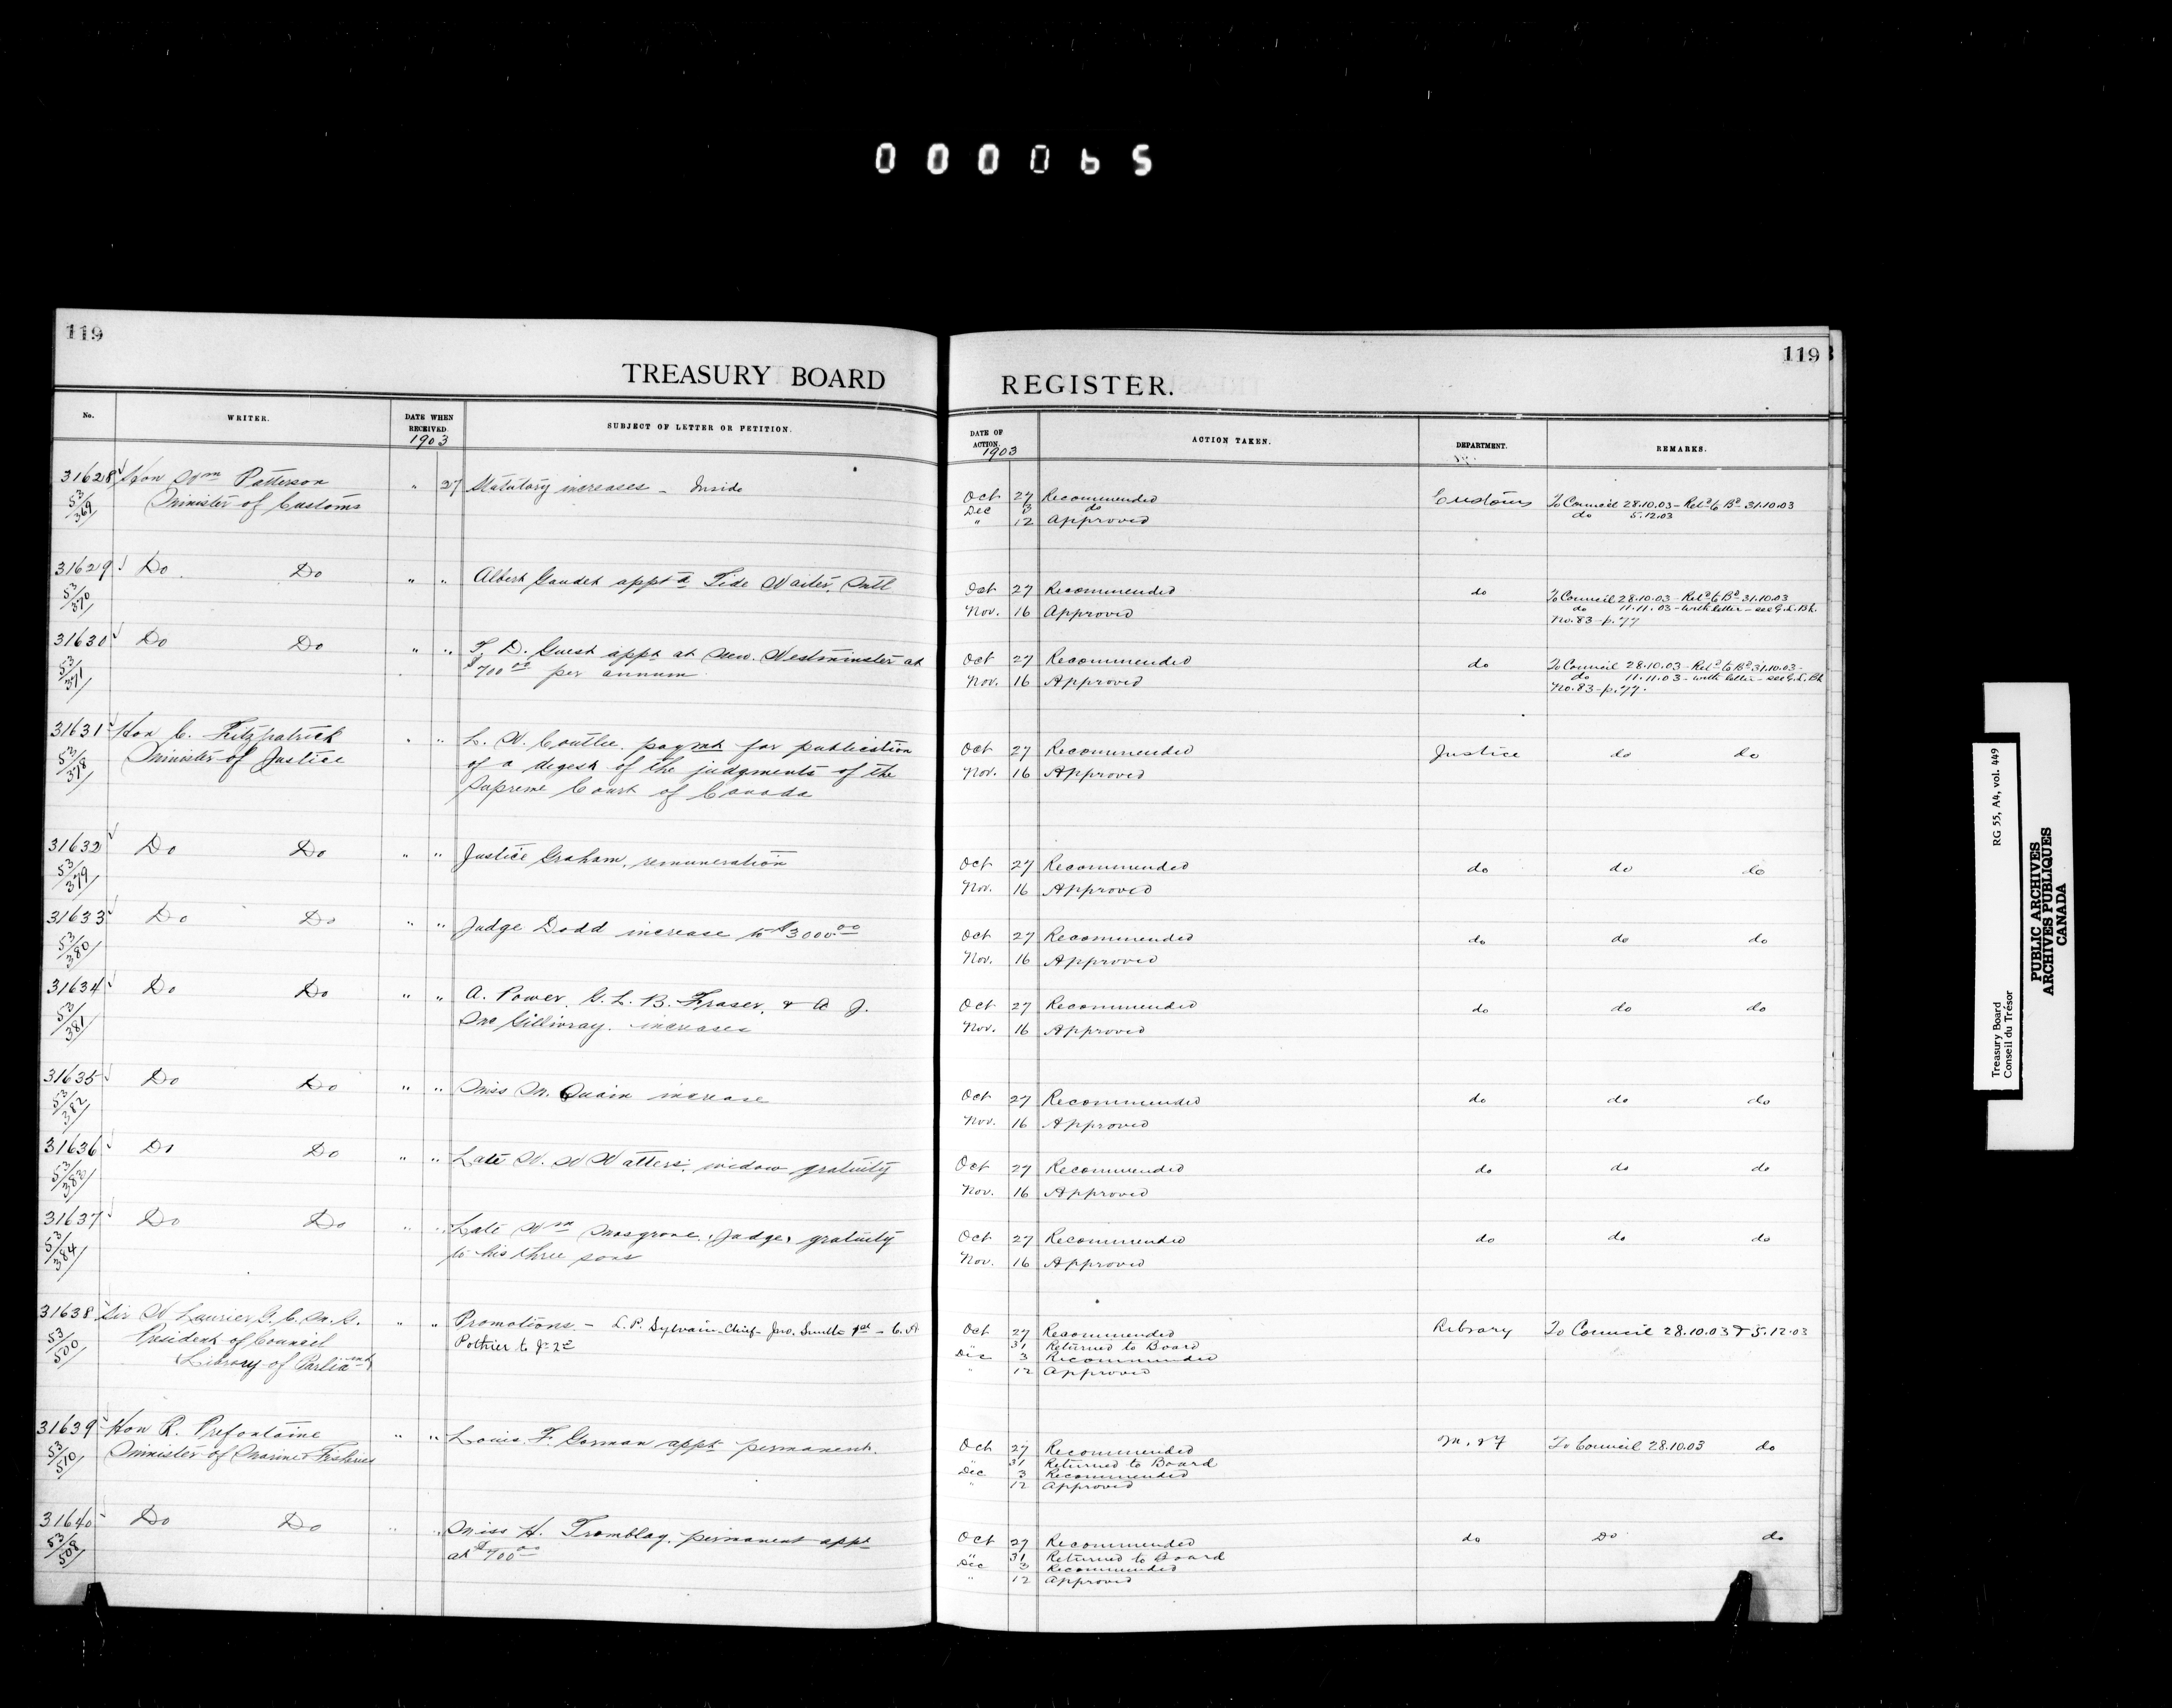 000065
119
TREASURY BOARD
No.
WRITER.
DATE WHEN RECEIVED
1903
SUBJECT OF LETTER OR PETITION.
31628 Hon Wm Patterson " 27 Statutory increases - Inside
53/369 Minister of Customs
31629 Do Do " " Albert Gaudet appt d Tide Waiter, Mtl
53/370
31630 Do Do " " T. D. Guest appt at New Westminster at
53/371 $700.00 per annum
31631 Hon C. Fitzpatrick " " L. W. Coutlee, paymt for publication
53/378 Minister of Justice of a digest of the judgments of the
Supreme Court of Canada
31632 Do Do " " Justice Graham, remuneration
53/379
31633 Do Do " " Judge Dodd increase to $3000.00
53/380
31634 Do Do " " A. Power, G. L. B. Fraser, & A J.
53/381 McGillivray. increases
31635 Do Do " " Miss M. Quain increase
53/382
31636 Do Do " " Late W. W Watters, widow gratuity
53/383
31637 Do Do " " Late Wm Mosgrove, Judge, gratuity
53/384 to his three sons
31638 Sir W Laurier G. C. M. G. " " Promotions - L. P. Sylvain-Chief- Jno. Smith 1st - C. A
53/500 President of Council Pothier to Jr 2d
Library of Parliamt
31639 Hon R. Prefontaine " " Louis F. Gorman appt permanent.
53/510 Minister of Marine & Fisheries
31640 Do Do " " Miss H. Tremblay, permanent appt
53/508 at $700.00
119
REGISTER.
DATE OF ACTION.
1903
ACTION TAKEN.
DEPARTMENT.
REMARKS.
Oct 27 Recommended Customs To Council 28.10.03 - Retd to Bd 31.10.03
Dec 3 do do 5.12.03
" 12 Approved
Oct 27 Recommended do To Council 28.10.03 - Retd to Bd 31.10.03
Nov. 16 Approved do 11.11.03 - with letter - see G. L. Bk.
No. 83 - p. 77
Oct 27 Recommended do To Council 28.10.03 - Retd to Bd 31.10.03 -
Nov. 16 Approved do 11.11.03 - with letter - see G. L. Bk
No. 83 - p. 77.
Oct 27 Recommended Justice do do
Nov. 16 Approved
Oct 27 Recommended do do do
Nov. 16 Approved
Oct 27 Recommended do do do
Nov. 16 Approved
Oct 27 Recommended do do do
Nov. 16 Approved
Oct 27 Recommended do do do
Nov. 16 Approved
Oct 27 Recommended do do do
Nov. 16 Approved
Oct 27 Recommended do do do
Nov. 16 Approved
Oct 27 Recommended Library To Council 28.10.03 & 5.12.03
" 31 Returned to Board
Dec 3 Recommended
" 12 Approved
Oct 27 Recommended M. & F To Council 28.10.03 do
" 31 Returned to Board
Dec 3 Recommended
" 12 Approved
Oct 27 Recommended do Do do
" 31 Returned to Board
Dec 3 Recommended
" 12 Approved
Treasury Board RG 55, A4, vol. 449
Conseil du Trésor
PUBLIC ARCHIVES
ARCHIVES PUBLIQUES
CANADA